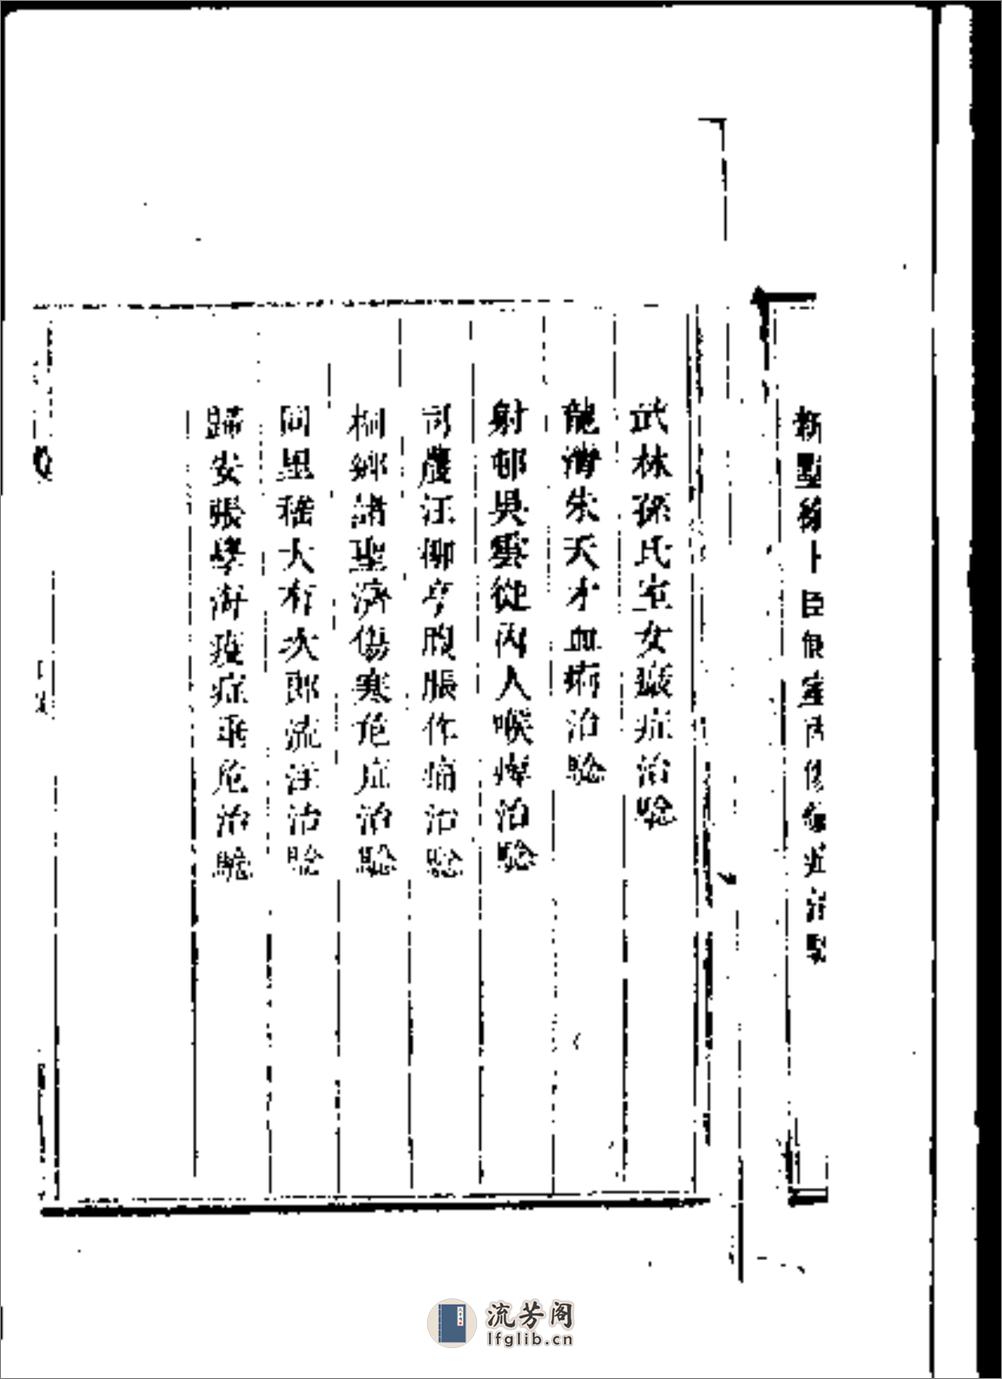 新墅徐卜臣側室內傷治驗
武林孫氏室女癥症治驗
龍灣朱天才血痢治驗
射邨吳雲從內人喉痺治驗
司農汪柳亭腹脹作痛治驗
桐鄉諸聖濟傷寒危症治驗
同里嵇大有次郎流注治驗
歸安張學海疫症垂危治驗
流芳阁
lfglib.cn